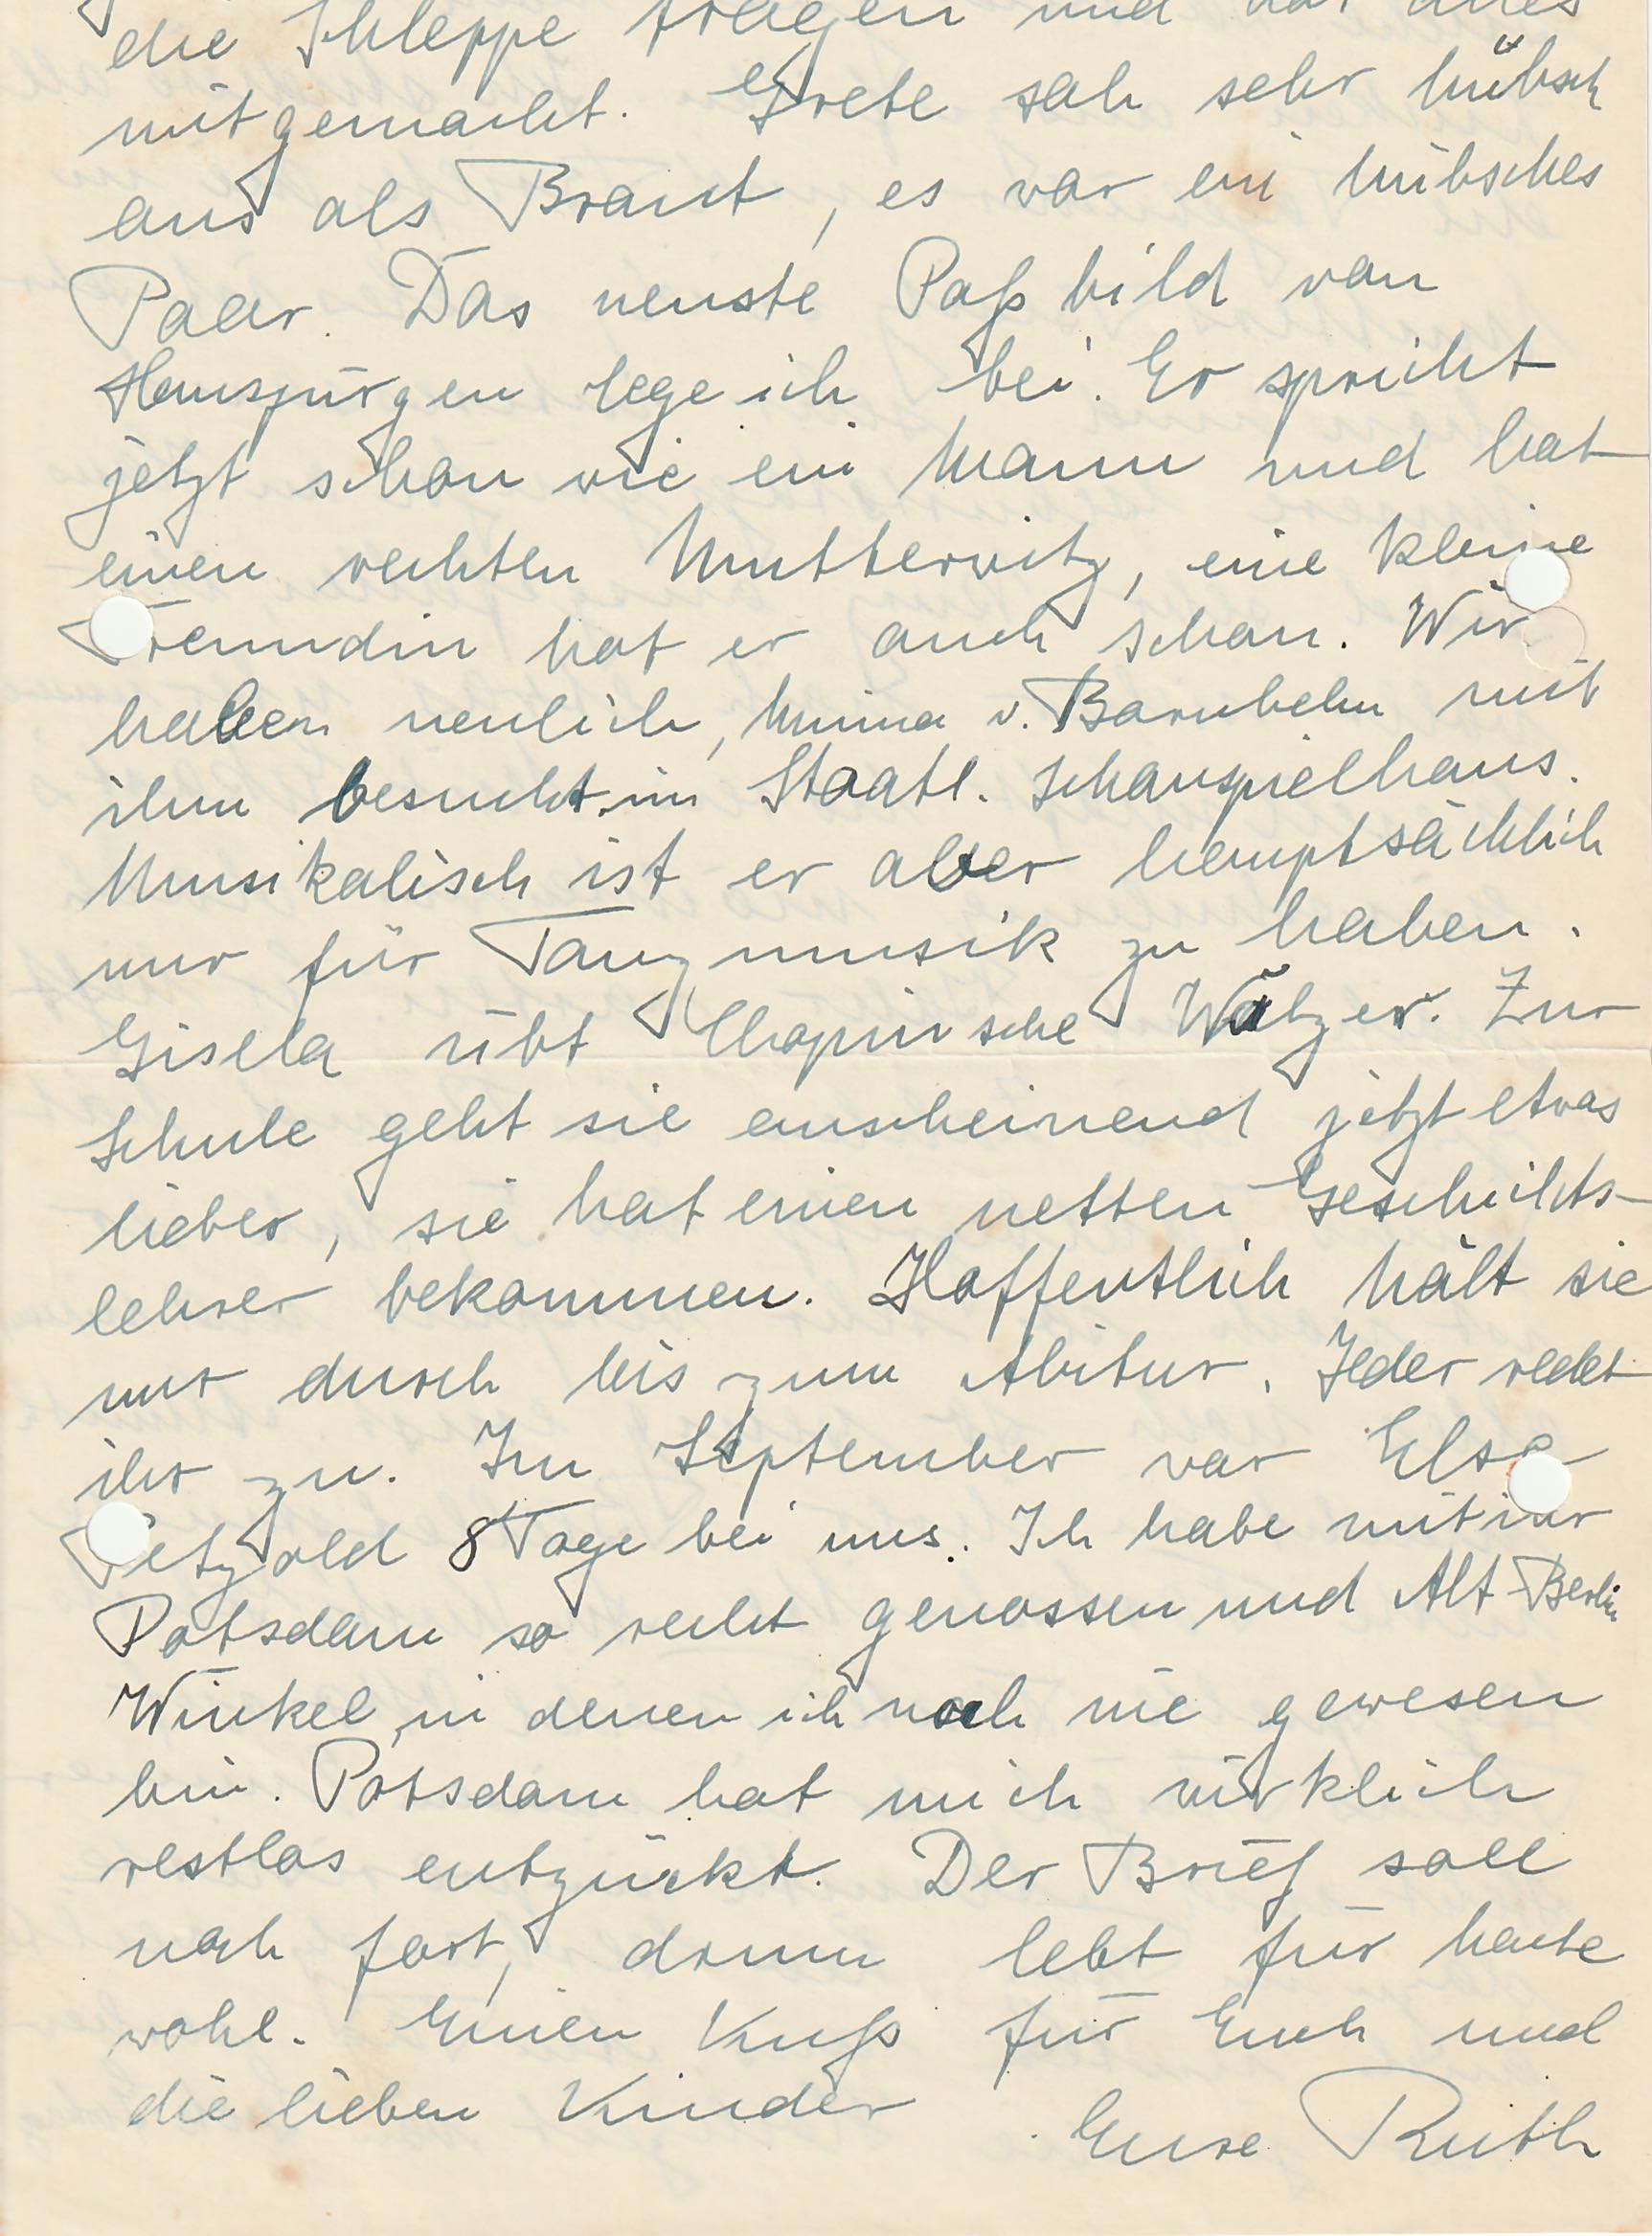 die Schleppe tragen und hat alles
mitgemacht. Grete sah sehr hübsch
aus als Braut, es war ein hübsches
Paar. Das neuste Paßbild von
Hansjürgen lege ich bei. Er spricht
jetzt schon wie ein Mann und hat
einen rechten Mutterwitz, eine kleine
Freundin hat er auch schon. Wir
haben neulich, Minna v. Barnhelm mit
ihm besucht im Staatl. Schauspielhaus.
Musikalisch ist er aber hauptsächlich
nur für Tanzmusik zu haben.
Gisela übt Chopinsche Walzer. Zur
Schule geht sie anscheinend jetzt etwas
lieber, sie hat einen netten Geschichts-
lehrer bekommen. Hoffentlich hält sie
nur durch bis zum Abitur. Jeder redet
ihr zu. Im September war Else
Petzold 8 Tage bei uns. Ich habe mit ihr
Potsdam so recht genossen und Alt-Berlin
Winkel, in denen ich noch nie gewesen
bin. Potsdam hat mich wirklich
restlos entzückt. Der Brief soll
noch fort, drum lebt für heute
wohl. Einen Kuß für Euch und
die lieben Kinder
Eure Ruth